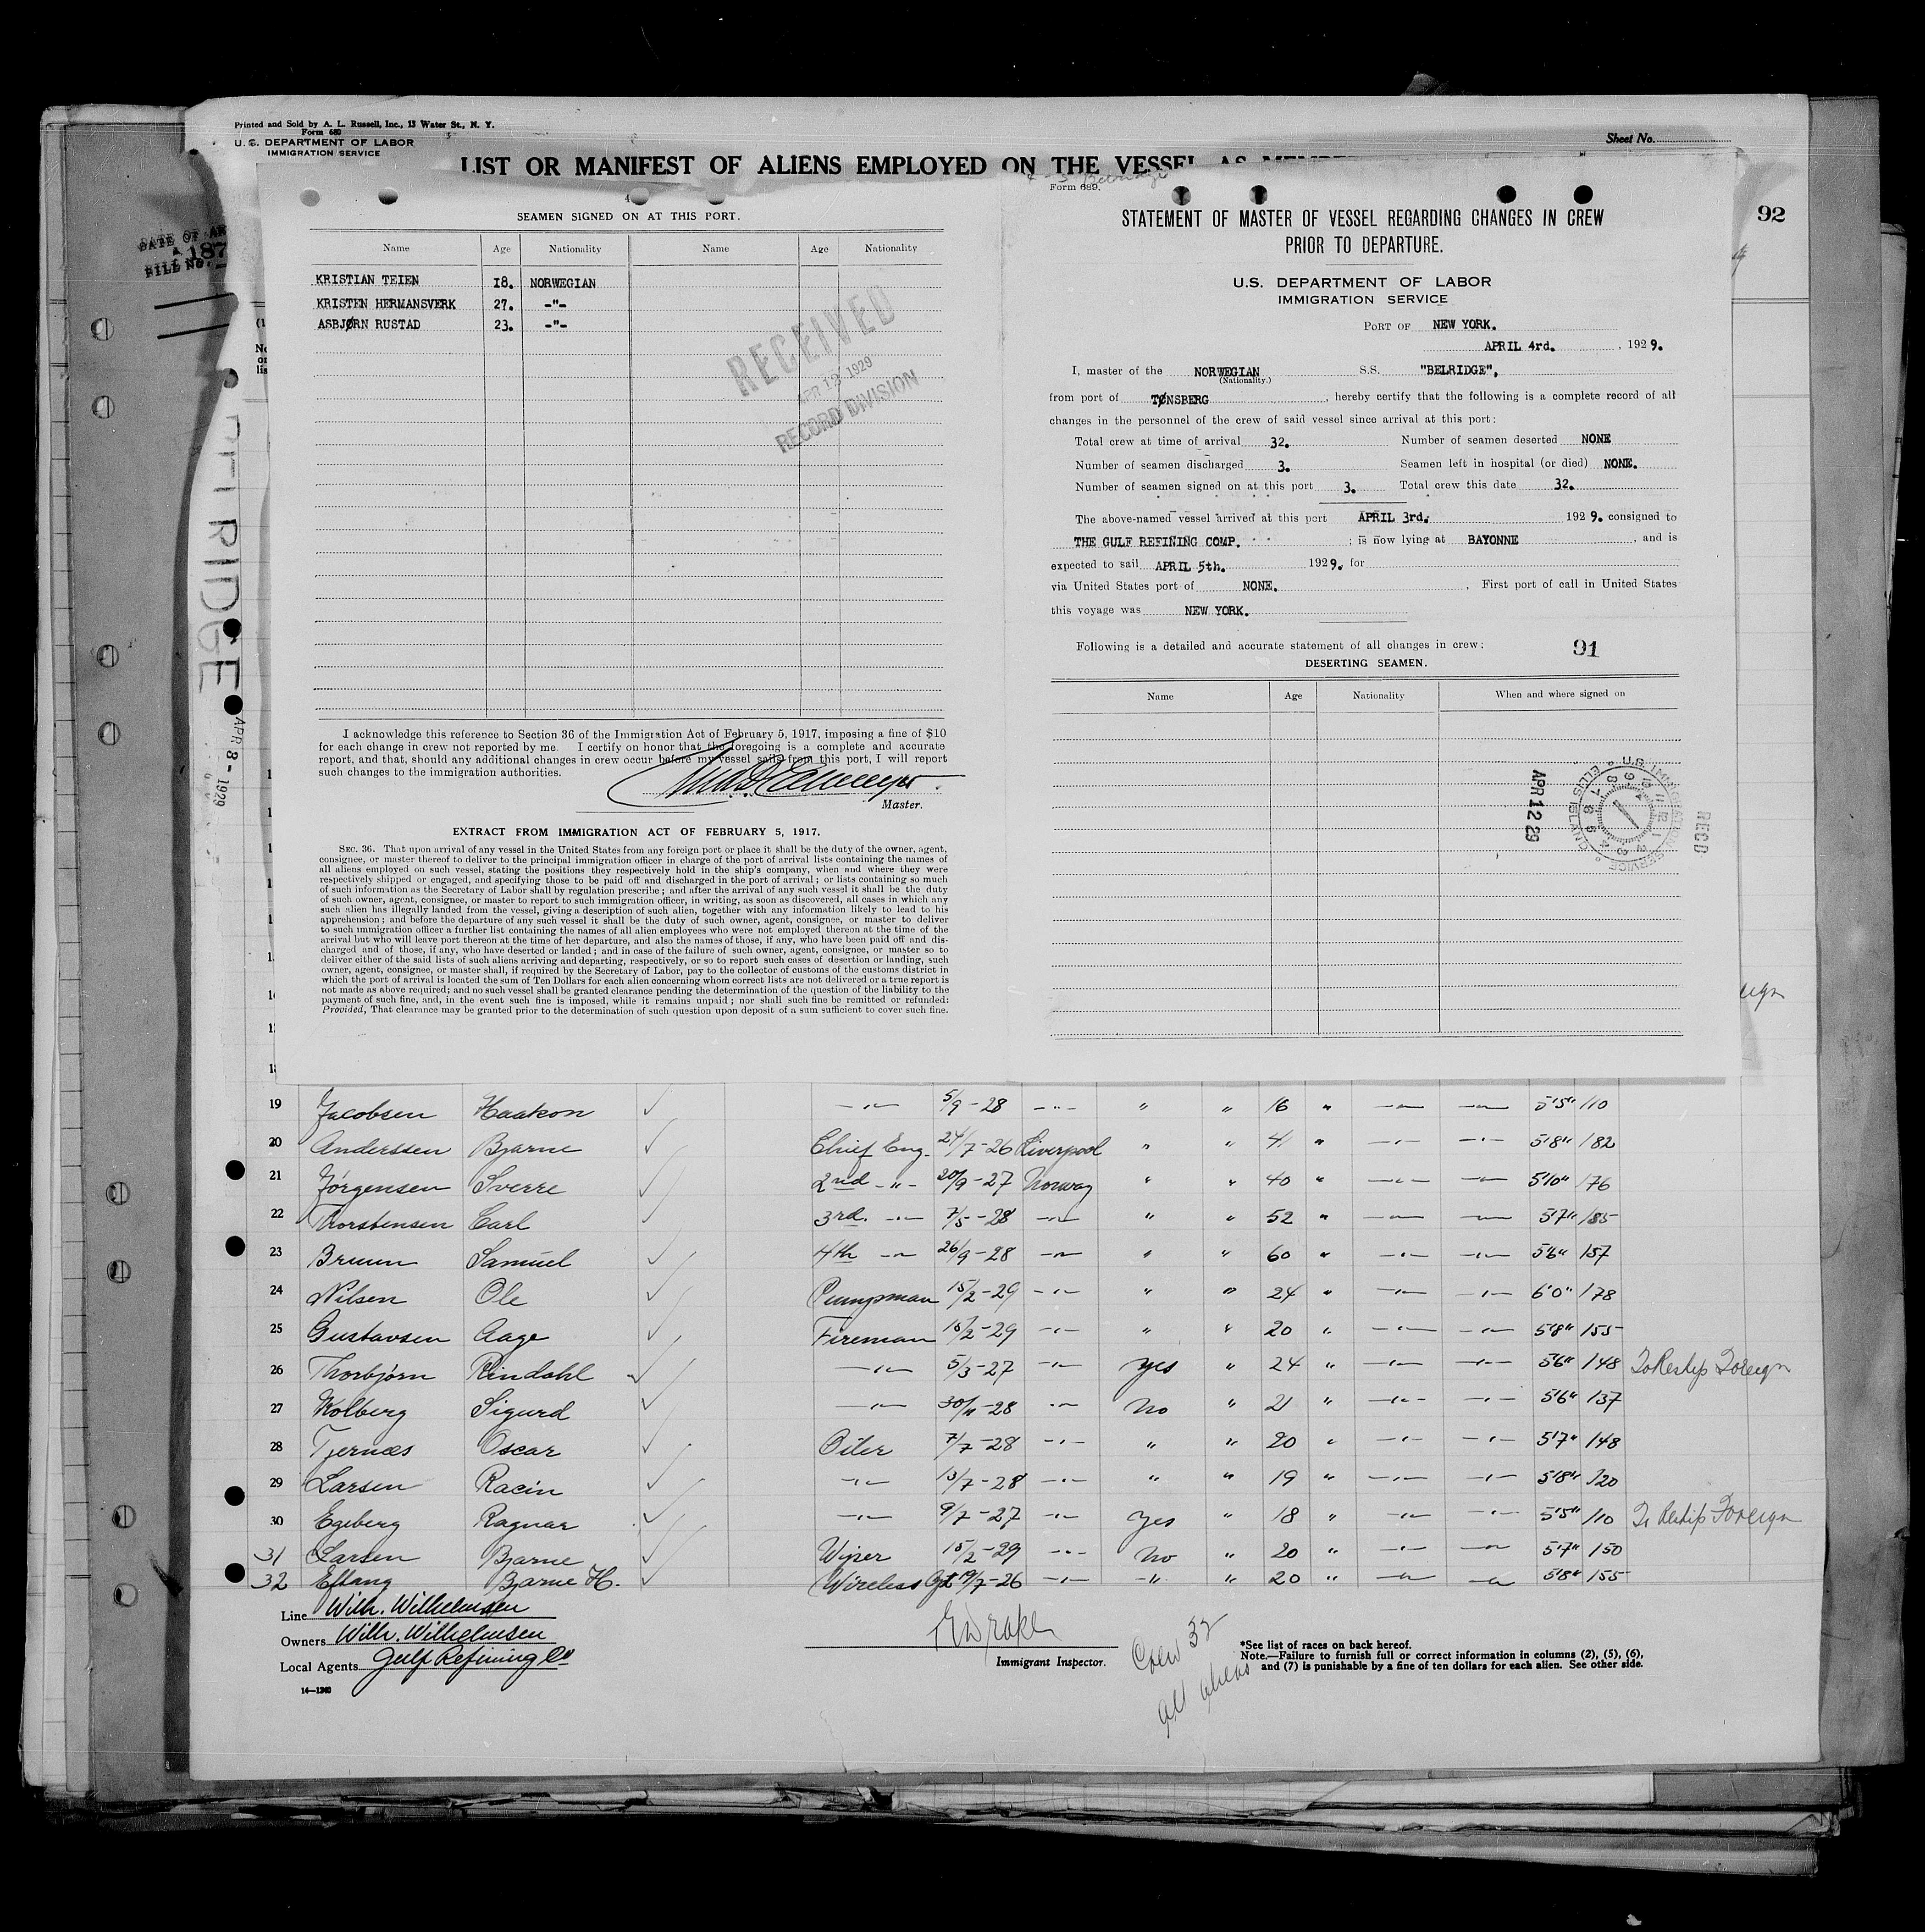 Printed and Sold by A. L. Russell, Inc., 13 Water St., N. Y.
Form 680
U. S. DEPARTMENT OF LABOR
IMMIGRATION SERVICE
Sheet No.
LIST OR MANIFEST OF ALIENS EMPLOYED ON THE VESSEL AS
92
DATE OF
187
FILE NO.
BELRIDGE
APR 8 - 1929
4
SEAMEN SIGNED ON AT THIS PORT.
Name Age Nationality Name Age Nationality
KRISTIAN TEIEN 18. NORWEGIAN
KRISTEN HERMANSVERK 27. -"-
ASBJØRN RUSTAD 23. -"-
RECEIVED
APR 12 1929
RECORD DIVISION
I acknowledge this reference to Section 36 of the Immigration Act of February 5, 1917, imposing a fine of $10
for each change in crew not reported by me. I certify on honor that the foregoing is a complete and accurate
report, and that, should any additional changes in crew occur before my vessel sails from this port, I will report
such changes to the immigration authorities.
Master.
EXTRACT FROM IMMIGRATION ACT OF FEBRUARY 5, 1917.
SEC. 36. That upon arrival of any vessel in the United States from any foreign port or place it shall be the duty of the owner, agent,
consignee, or master thereof to deliver to the principal immigration officer in charge of the port of arrival lists containing the names of
all aliens employed on such vessel, stating the positions they respectively hold in the ship's company, when and where they were
respectively shipped or engaged, and specifying those to be paid off and discharged in the port of arrival; or lists containing so much
of such information as the Secretary of Labor shall by regulation prescribe; and after the arrival of any such vessel it shall be the duty
of such owner, agent, consignee, or master to report to such immigration officer, in writing, as soon as discovered, all cases in which any
such alien has illegally landed from the vessel, giving a description of such alien, together with any information likely to lead to his
apprehension; and before the departure of any such vessel it shall be the duty of such owner, agent, consignee, or master to deliver
to such immigration officer a further list containing the names of all alien employees who were not employed thereon at the time of the
arrival but who will leave port thereon at the time of her departure, and also the names of those, if any, who have been paid off and dis-
charged and of those, if any, who have deserted or landed; and in case of the failure of such owner, agent, consignee, or master so to
deliver either of the said lists of such aliens arriving and departing, respectively, or so to report such cases of desertion or landing, such
owner, agent, consignee, or master shall, if required by the Secretary of Labor, pay to the collector of customs of the customs district in
which the port of arrival is located the sum of Ten Dollars for each alien concerning whom correct lists are not delivered or a true report is
not made as above required; and no such vessel shall be granted clearance pending the determination of the question of the liability to the
payment of such fine, and, in the event such fine is imposed, while it remains unpaid; nor shall such fine be remitted or refunded:
Provided, That clearance may be granted prior to the determination of such question upon deposit of a sum sufficient to cover such fine.
Form 689.
STATEMENT OF MASTER OF VESSEL REGARDING CHANGES IN CREW
PRIOR TO DEPARTURE.
U.S. DEPARTMENT OF LABOR
IMMIGRATION SERVICE
PORT OF NEW YORK.
APRIL 4rd. , 1929.
I, master of the NORWEGIAN S.S. "BELRIDGE",
(Nationality.)
from port of TØNSBERG , hereby certify that the following is a complete record of all
changes in the personnel of the crew of said vessel since arrival at this port:
Total crew at time of arrival 32. Number of seamen deserted NONE
Number of seamen discharged 3. Seamen left in hospital (or died) NONE.
Number of seamen signed on at this port 3. Total crew this date 32.
The above-named vessel arrived at this port APRIL 3rd. 1929. consigned to
THE GULF REFINING COMP. ; is now lying at BAYONNE , and is
expected to sail APRIL 5th. 1929. for
via United States port of NONE. . First port of call in United States
this voyage was NEW YORK.
Following is a detailed and accurate statement of all changes in crew: 91
DESERTING SEAMEN.
Name Age Nationality When and where signed on
U.S. IMMIGRATION SERVICE ELLIS ISLAND
APR 12 29
REC'D
19 Jacobsen Haakon ✓ -"- 5/9-28 -"- " " 16 " -"- -"- 5'5" 110
20 Anderssen Bjarne ✓ Chief Eng. 24/7-26 Liverpool " " 41 " -"- -"- 5'8" 182
21 Jørgensen Sverre ✓ 2nd -"- 20/9-27 Norway " " 40 " -"- -"- 5'10" 176
22 Thorstensen Carl ✓ 3rd. -"- 7/5-28 -"- " " 52 " -"- -"- 5'7" 185
23 Bruun Samuel ✓ 4th -"- 26/9-28 -"- " " 60 " -"- -"- 5'6" 157
24 Nilsen Ole ✓ Pumpman 15/2-29 -"- " " 24 " -"- -"- 6'0" 178
25 Gustavsen Aage ✓ Fireman 15/2-29 -"- " " 20 " -"- -"- 5'8" 155
26 Thorbjørn Rindahl ✓ -"- 5/3-27 -"- yes " 24 " -"- -"- 5'6" 148 To Reship Foreign
27 Kolberg Sigurd ✓ -"- 30/11-28 -"- No " 21 " -"- -"- 5'6" 137
28 Tjernæs Oscar ✓ Oiler 7/7-28 -"- " " 20 " -"- -"- 5'7" 148
29 Larsen Racin ✓ -"- 13/7-28 -"- " " 19 " -"- -"- 5'8" 120
30 Egeberg Ragnar ✓ -"- 9/7-27 -"- yes " 18 " -"- -"- 5'5" 110 To Reship Foreign
31 Larsen Bjarne ✓ Wiper 15/2-29 -"- No " 20 " -"- -"- 5'7" 150
32 Eftang Bjarne H. ✓ Wireless Opt 19/7-26 -"- -"- " 20 " -"- -"- 5'8" 155
Line Wilh. Wilhelmsen
Owners Wilh. Wilhelmsen
Local Agents Gulf Refining Co
14-1240
Immigrant Inspector.
Crew 32
all aliens
*See list of races on back hereof.
Note.—Failure to furnish full or correct information in columns (2), (5), (6),
and (7) is punishable by a fine of ten dollars for each alien. See other side.